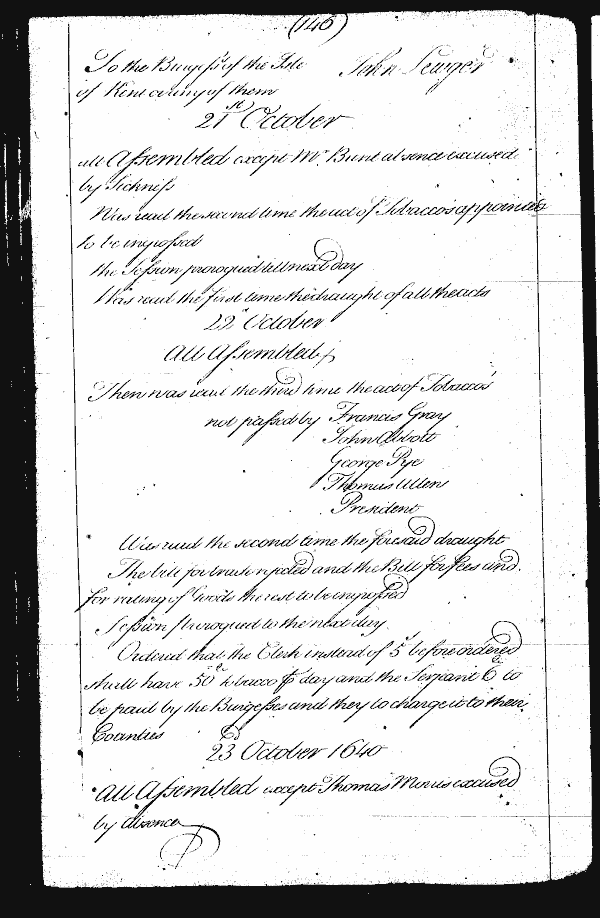 (146)
To the Burgess of the Isle John
of Kent county of them
21st October
all Assembled except Mr Brent absence excused
by Sickness
Was read the second time the act of Tobaccos appointed
to be ingrossed
the Session proroqued till next day
Was read the first time the draught of all the acts
22d October
All Assembled
Then was read the third time the act of Tobaccos
not passed by Francis Gray
John Abbott
George Pye
Thomas Allen
President
Was read the second time the foresaid draught
The bill for trade rejected and the Bill for fees and
for rating of Goods the rest to be ingrossed
Session proroqued to the next day.
Ordered that the Clerk instead of 5d before ordered
shall have 50 tobacco p day and the Serjeant 6d to
be paid by the Burgesses and they to charge it to their
Counties
23d October 1640
All Assembled except Thomas Morris excused
by absence